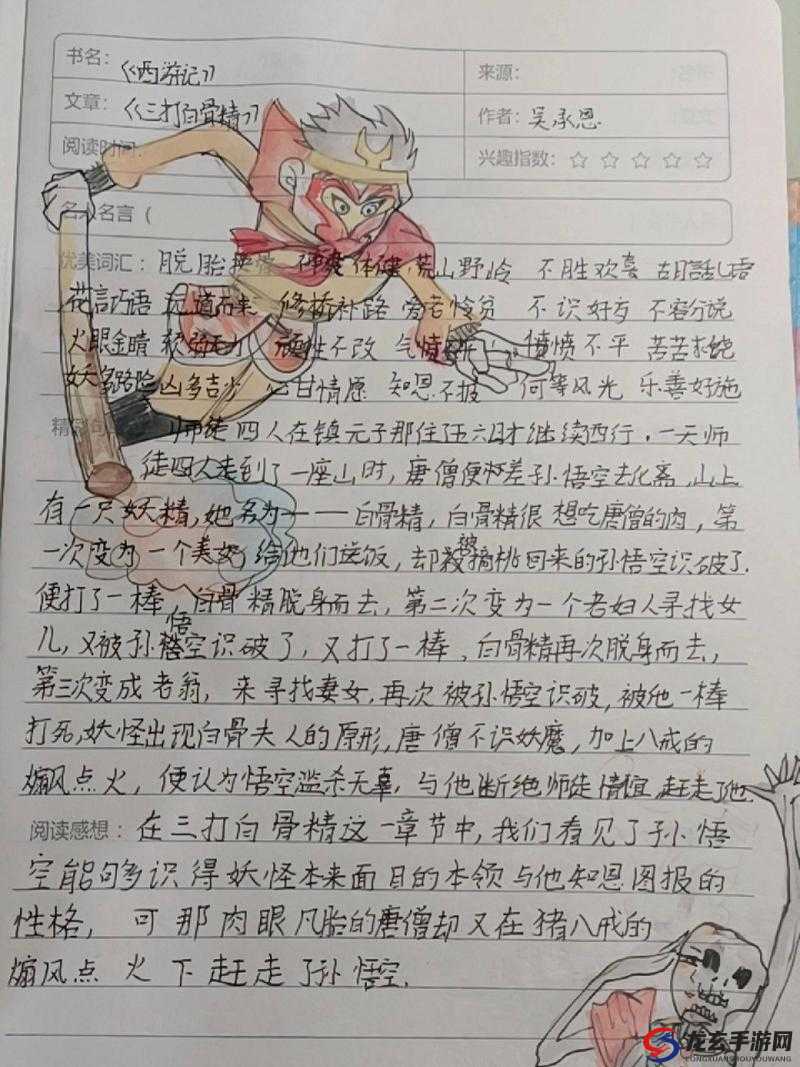 书名：《西游记》
来源：
文章：《三打白骨精》
作者：吴承恩
阅读时间：
兴趣指数：☆ ☆ ☆ ☆ ☆
名人名言（
优美词汇：脱胎换骨 荒山野岭 不胜欢喜 胡言乱语
花言巧语 远道而来 修桥补路 爱老怜贫 不识好歹 不容分说
火眼金睛 软弱无力 顽性不改 愤愤不平 苦苦求饶
妖多路险 凶多吉少 心甘情愿 知恩不报 何等风光 乐善好施
师徒四人在镇元子那住了五六日才继续西行，一天师
徒四人走到了一座山时，唐僧便差孙悟空去化斋，山上
有一只妖精，她名为——白骨精，白骨精很想吃唐僧的肉，第
一次变为一个美女给他们送饭，却被摘桃回来的孙悟空识破了.
便打了一棒，白骨精脱身而去，第二次变为一个老妇人寻找女
儿，又被孙悟空识破了，又打了一棒、白骨精再次脱身而去，
第三次变成老翁，来寻找妻女，再次被孙悟空识破，被他一棒
打死，妖怪出现白骨夫人的原形，唐僧不识妖魔，加上八戒的
煽风点火，便认为悟空滥杀无辜，与他断绝师徒情谊，赶走了他.
阅读感想：在三打白骨精这一章节中，我们看见了孙悟
空能够多识得妖怪本来面目的本领与他知恩图报的
性格，可那肉眼凡胎的唐僧却又在猪八戒的
煽风点火下赶走了孙悟空.
龙玄手游网
LONGXUANSHOUYOUWANG